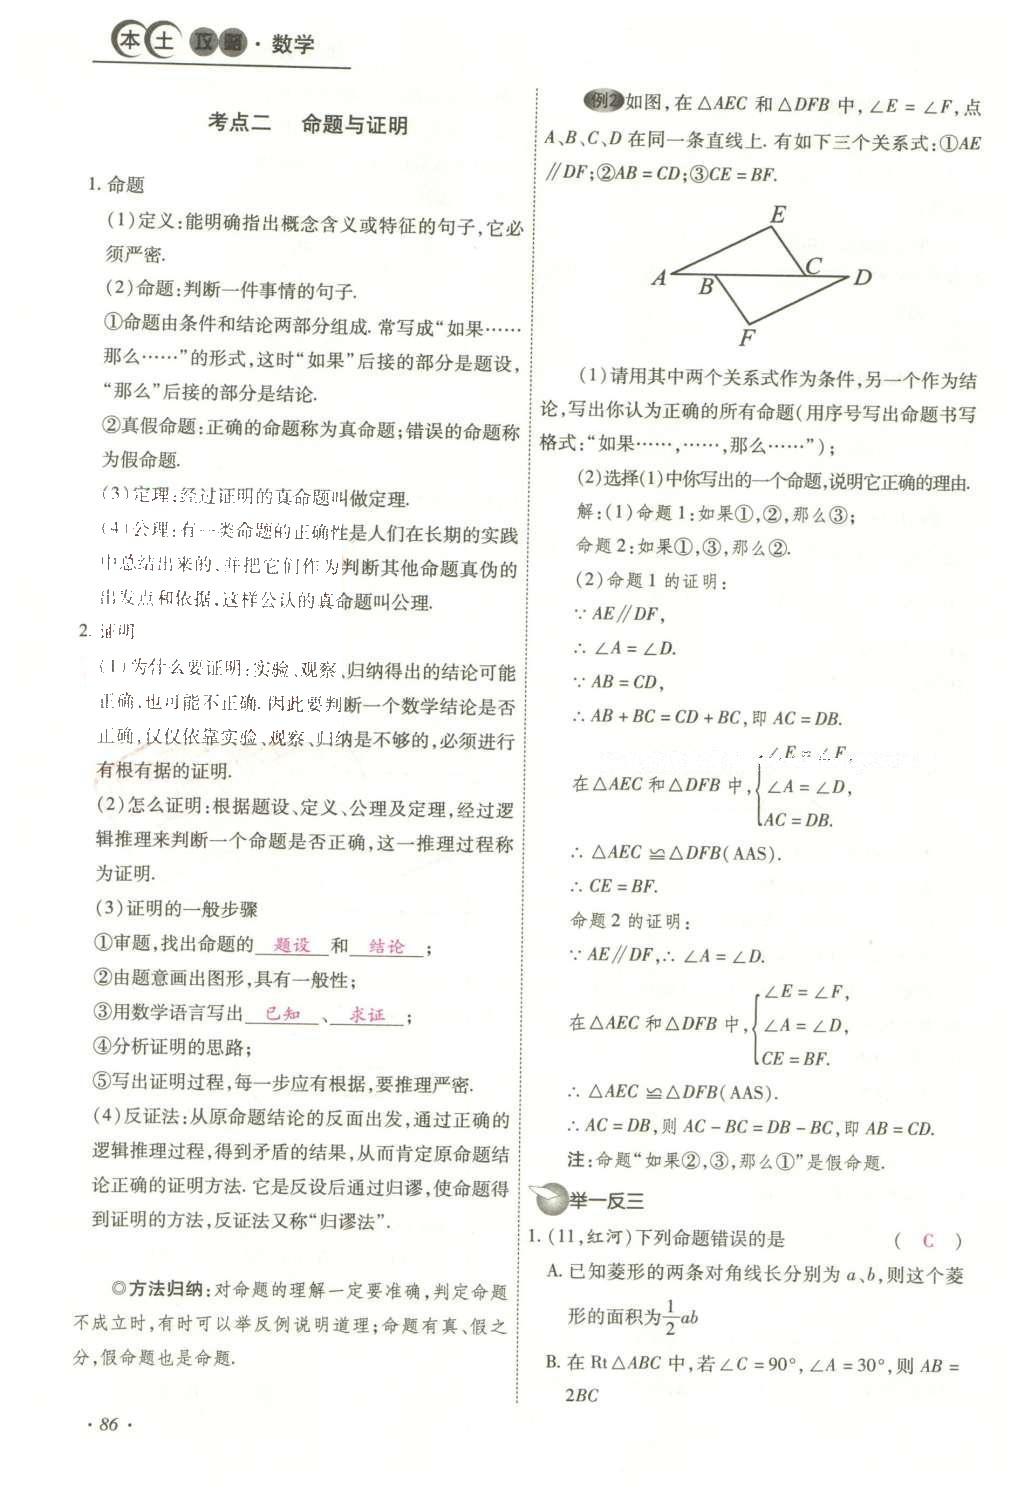 本土攻略·数学
考点二 命题与证明
1. 命题
(1)定义:能明确指出概念含义或特征的句子,它必
须严密.
(2)命题:判断一件事情的句子.
①命题由条件和结论两部分组成. 常写成“如果……
那么……”的形式,这时“如果”后接的部分是题设,
“那么”后接的部分是结论.
②真假命题:正确的命题称为真命题;错误的命题称
为假命题.
(3)定理:经过证明的真命题叫做定理.
(4)公理:有一类命题的正确性是人们在长期的实践
中总结出来的、并把它们作为判断其他命题真伪的
出发点和依据,这样公认的真命题叫公理.
2. 证明
(1)为什么要证明:实验、观察、归纳得出的结论可能
正确,也可能不正确. 因此要判断一个数学结论是否
正确,仅仅依靠实验、观察、归纳是不够的,必须进行
有根有据的证明.
(2)怎么证明:根据题设、定义、公理及定理,经过逻
辑推理来判断一个命题是否正确,这一推理过程称
为证明.
(3)证明的一般步骤
①审题,找出命题的 题设 和 结论 ;
②由题意画出图形,具有一般性;
③用数学语言写出 已知 、 求证 ;
④分析证明的思路;
⑤写出证明过程,每一步应有根据,要推理严密.
(4)反证法:从原命题结论的反面出发,通过正确的
逻辑推理过程,得到矛盾的结果,从而肯定原命题结
论正确的证明方法. 它是反设后通过归谬,使命题得
到证明的方法,反证法又称“归谬法”.
◎方法归纳:对命题的理解一定要准确,判定命题
不成立时,有时可以举反例说明道理;命题有真、假之
分,假命题也是命题.
· 86 ·
例2 如图,在△AEC 和△DFB 中,∠E = ∠F,点
A、B、C、D 在同一条直线上. 有如下三个关系式:①AE
∥DF;②AB = CD;③CE = BF.
E
A B C D
F
(1)请用其中两个关系式作为条件,另一个作为结
论,写出你认为正确的所有命题(用序号写出命题书写
格式:“如果……,……,那么……”);
(2)选择(1)中你写出的一个命题,说明它正确的理由.
解:(1)命题1:如果①,②,那么③;
命题2:如果①,③,那么②.
(2)命题1的证明:
∵ AE∥DF,
∴ ∠A = ∠D.
∵ AB = CD,
∴ AB + BC = CD + BC,即 AC = DB.
∠E = ∠F,
在△AEC 和△DFB 中, ∠A = ∠D,
AC = DB.
∴ △AEC ≌ △DFB(AAS).
∴ CE = BF.
命题2的证明:
∵ AE∥DF,∴ ∠A = ∠D.
∠E = ∠F,
在△AEC 和△DFB 中, ∠A = ∠D,
CE = BF.
∴ △AEC ≌ △DFB(AAS).
∴ AC = DB,则 AC − BC = DB − BC,即 AB = CD.
注:命题“如果②,③,那么①”是假命题.
举一反三
1. (11,红河)下列命题错误的是 ( C )
A. 已知菱形的两条对角线长分别为 a、b,则这个菱
形的面积为1/2ab
B. 在 Rt△ABC 中,若∠C = 90°,∠A = 30°,则 AB =
2BC